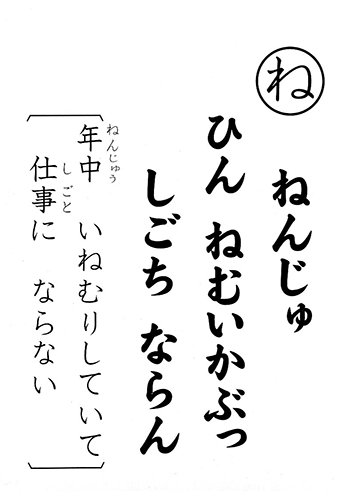 ね
ねんじゅ
ひん ねむいかぶっ
しごち ならん
年中 いねむりしていて
ねんじゅう
仕事に ならない
しごと